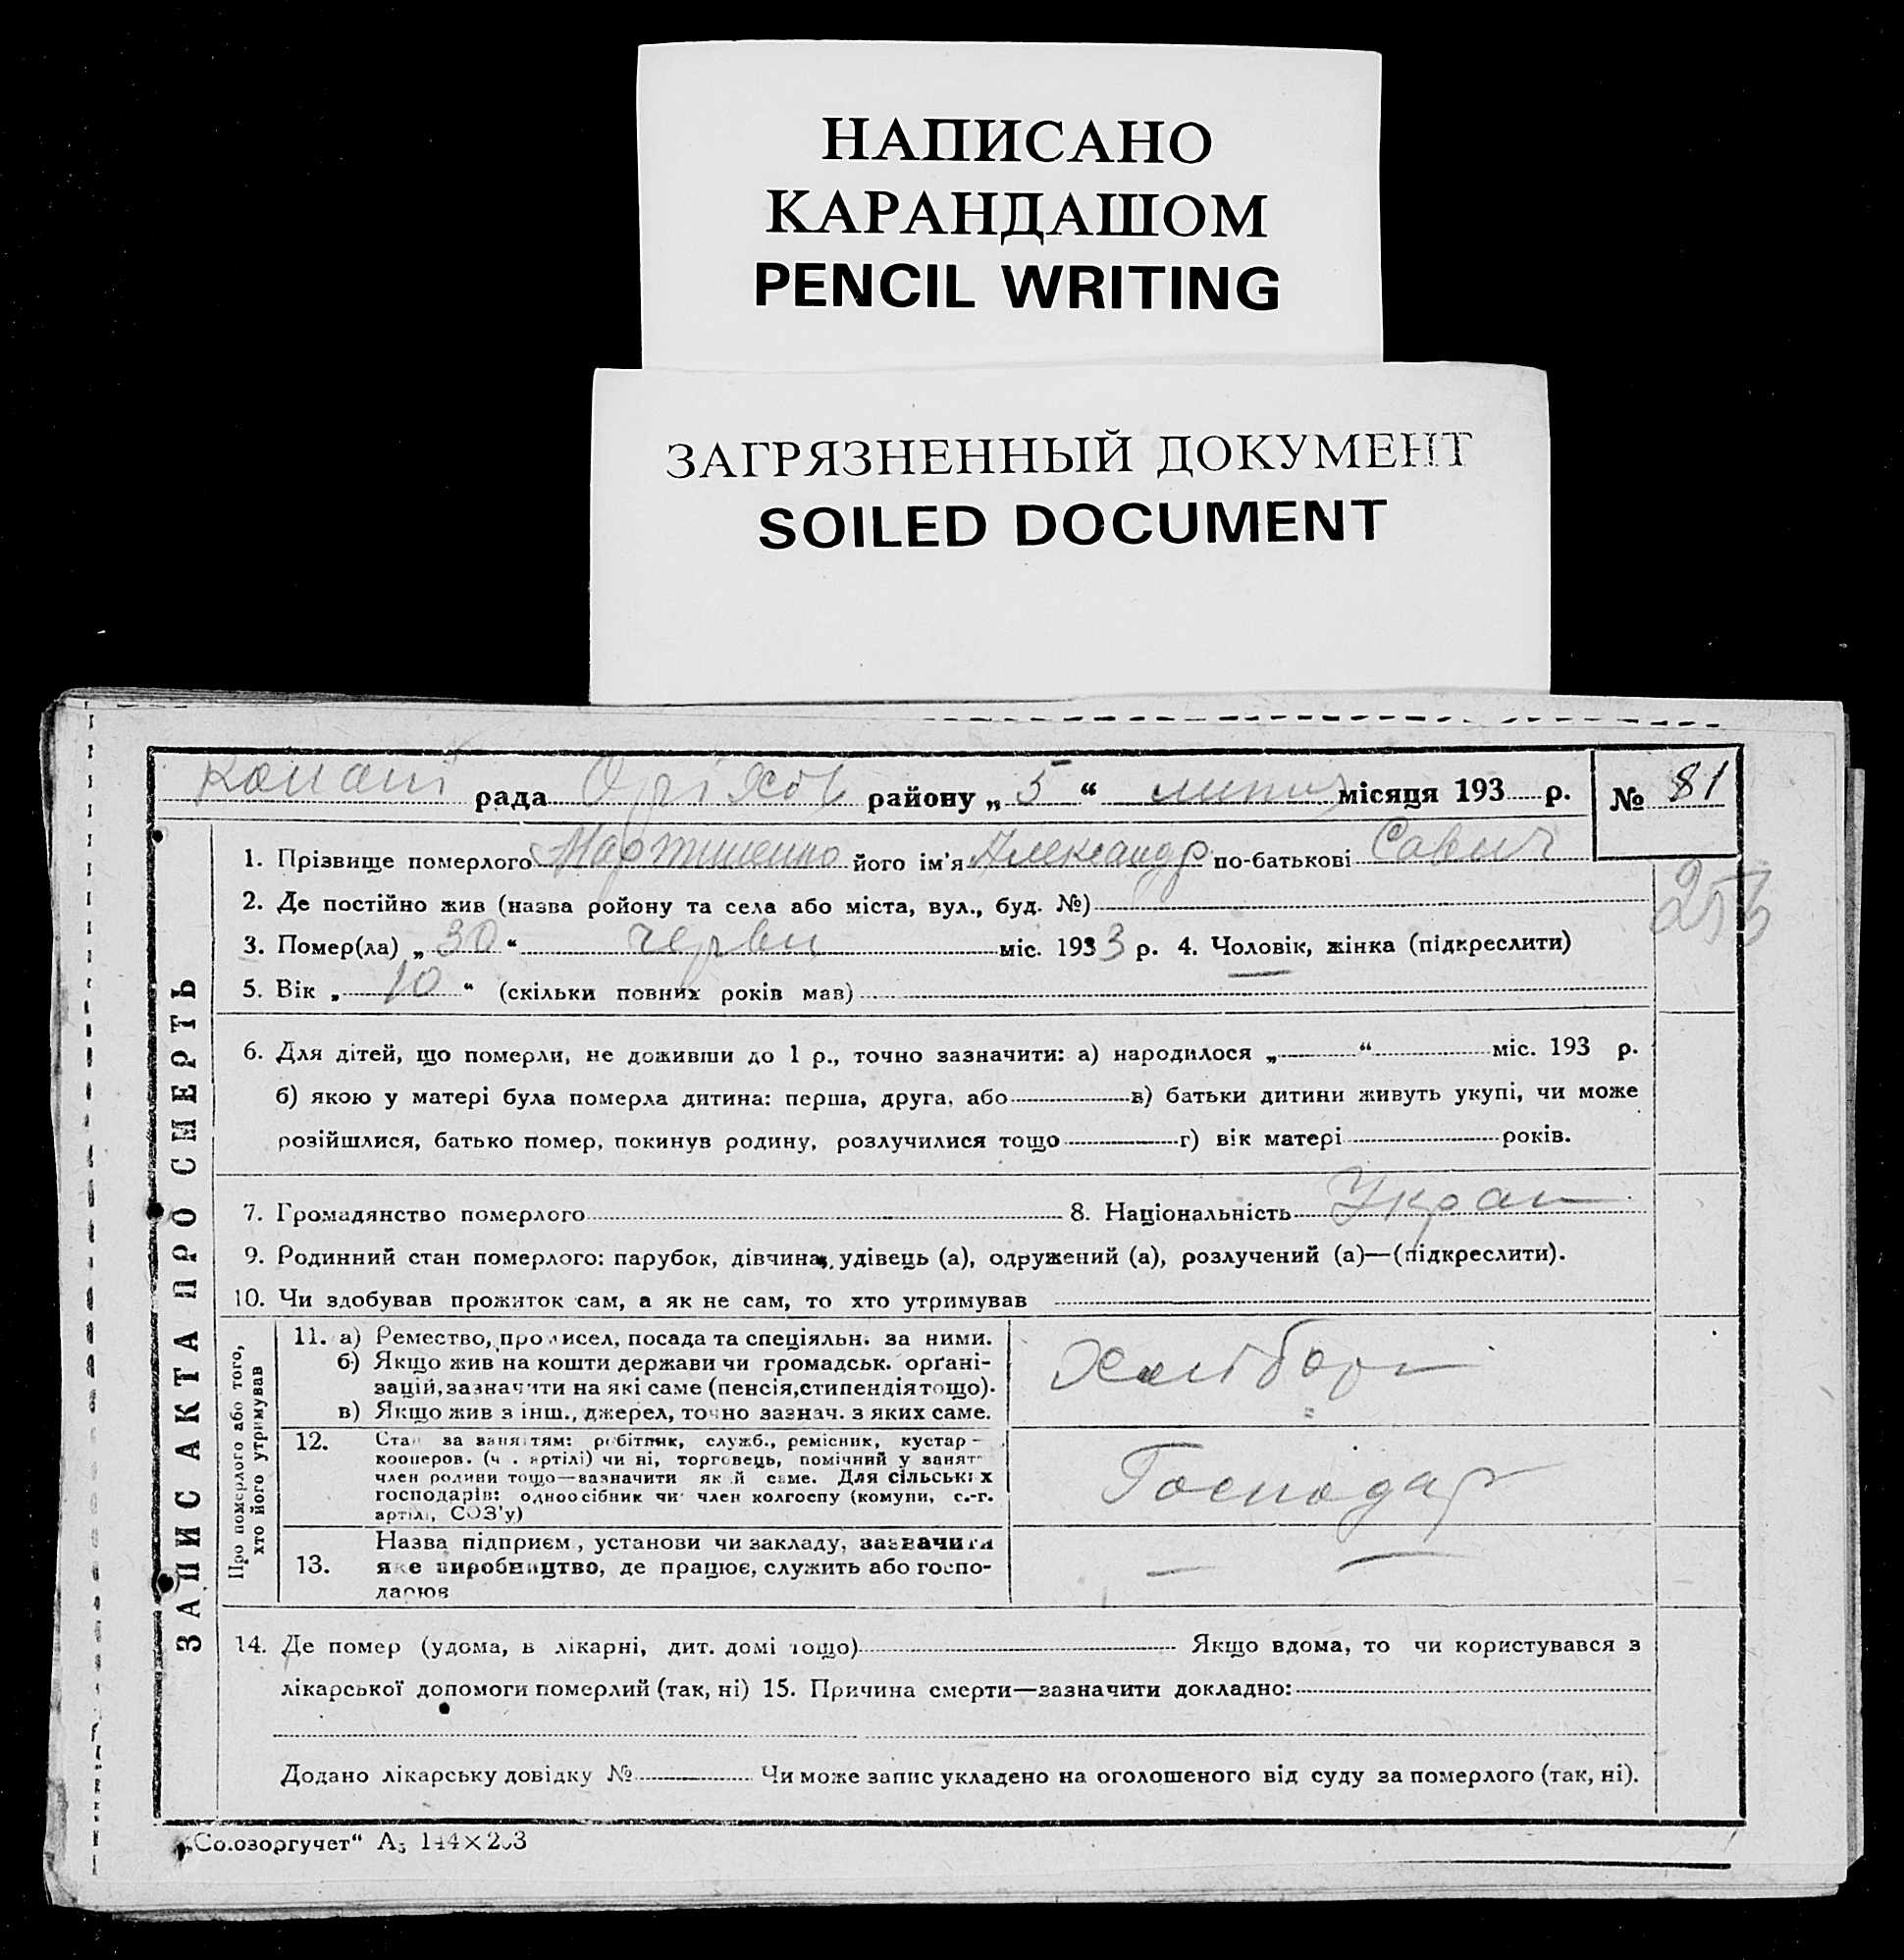 НАПИСАНО
КАРАНДАШОМ
PENCIL WRITING
ЗАГРЯЗНЕННЫЙ ДОКУМЕНТ
SOILED DOCUMENT
Копані рада Оріхов району „ 5 “ липня місяця 193 р. № 81
1. Прізвище померлого Мартиненко його ім'я Александр по-батькові Савич
253
2. Де постійно жив (назва ройону та села або міста, вул., буд. №)
3. Помер(ла) „ 30 “ червн міс. 1933 р. 4. Чоловік, жінка (підкреслити)
5. Вік „ 10 “ (скільки повних років мав)
6. Для дітей, що померли, не доживши до 1 р., точно зазначити: а) народилося „ “ міс. 193 р.
б) якою у матері була померла дитина: перша, друга, або в) батьки дитини живуть укупі, чи може
розійшлися, батько помер, покинув родину, розлучилися тощо г) вік матері років.
7. Громадянство померлого 8. Національність Украї
9. Родинний стан померлого: парубок, дівчина, удівець (а), одружений (а), розлучений (а)—(підкреслити).
10. Чи здобував прожиток сам, а як не сам, то хто утримував
ЗАПИС АКТА ПРО СМЕРТЬ
Про померлого або того,
хто його утримував
11. а) Ремество, промисел, посада та спеціяльн. за ними.
б) Якщо жив на кошти держави чи громадськ. орґані-
зацій, зазначити на які саме (пенсія, стипендія тощо).
в) Якщо жив з інш., джерел, точно зазнач. з яких саме.
Хлібор
12. Стан за заняттям: робітник, служб., ремісник, кустар—
кооперов. (ч. артілі) чи ні, торговець, помічний у занят
член родини тощо—зазначити який саме. Для сільських
господарів: одноосібник чи член колгоспу (комуни, с.-г.
артілі, СОЗ'у)
Господар
13. Назва підприєм., установи чи закладу, зазначити
яке виробництво, де працює, служить або госпо-
дарює
— —
14. Де помер (удома, в лікарні, дит. домі тощо) Якщо вдома, то чи користувався з
лікарської допомоги померлий (так, ні) 15. Причина смерти—зазначити докладно:
Додано лікарську довідку № Чи може запис укладено на оголошеного від суду за померлого (так, ні).
„Союзоргучет“ А5 144×203